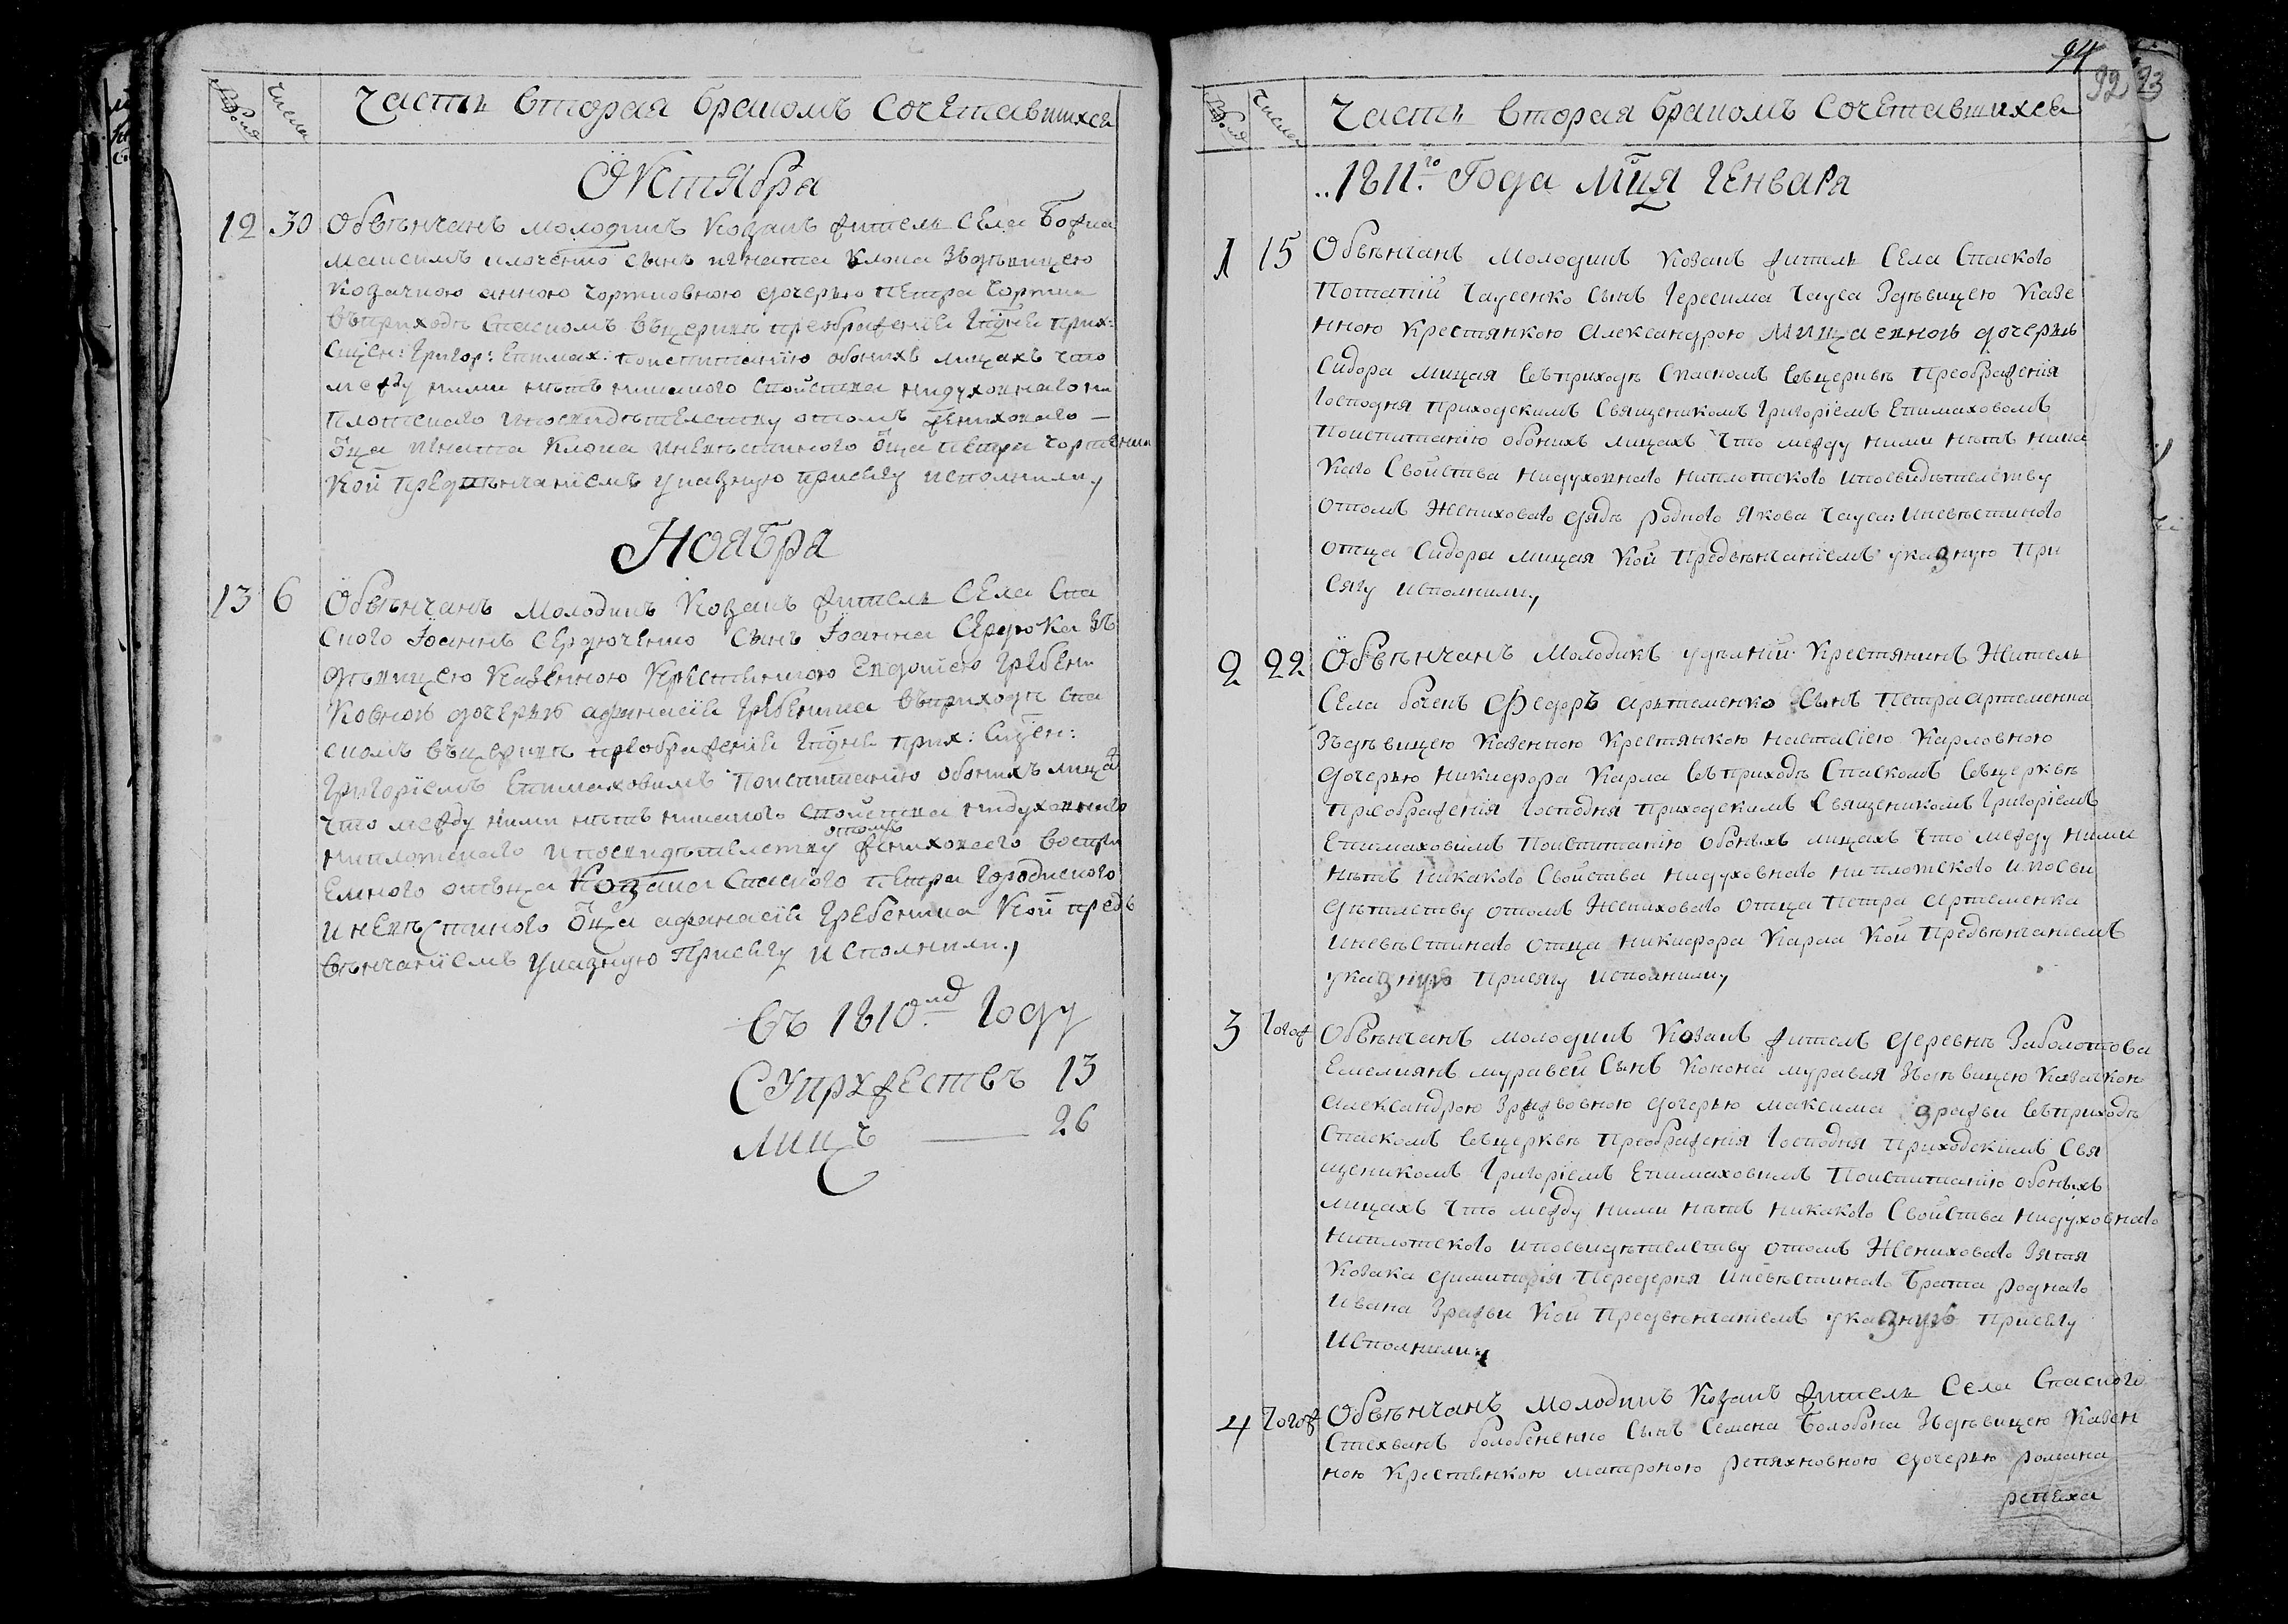 Числа
Часть вторая бракомъ сочетавшихся
Октября
12 30 Обвѣнчанъ молодикъ козакъ житель села Бочка
Максимъ клоченко сынъ игната клока здѣвицею
козачкою анною чорт­ковною дочерью петра чортка
въприходѣ спаскомъ въцерквѣ преображенія Гпдня прих:
Сщен: Григор: Епимах: поиспитанію обоихъ лицахъ что
между ними нѣтъ никакого свойства нидуховнаго ни
плотскаго ипосвидѣтелству отомъ жениховаго —
оца игната клока иневѣстиного оца петра
кой предвѣнчаніемъ указную присягу исполнили,
Ноября
13 6 Обвѣнчанъ молодикъ козакъ житель села Спа
ского Іоаннъ сердюченко сынъ Іоанна Сердюка зъ
дѣвицею казенною крестянкою Евдокіею Гребени
ковною дочерью афанасія Гребеника въприходѣ спа
скомъ въцерквѣ преображенія Гпдня прих: Сщен:
Григоріемъ Епимаховимъ поиспитанію обоихъ лицах
что между ними нѣтъ никакого свойства нидуховнаго
ниплотскаго ипосвидѣтелству отомъ жениховаго воспрі
емного отъца козака спаского петра городиского
иневѣстиного оца афанасія Гребеника кой предъ
вѣнчаніемъ указную присягу исполнили,
въ 1810мъ Году
Супружествъ 13
лицъ — 26
94
92 93
Числа
Часть вторая бракомъ сочетавшихся
1811го Года Мця Генваря
1 15 Обвѣнчанъ молодикъ козакъ житель села Спаского
Потапій Чаусенко сынъ Герасима Чауса здѣвицею казе
нною крестянкою Александрою Мицаевною дочерью
Сидора мицая въприходѣ Спаскомъ въцерквѣ Преображенія
Господня приходскимъ Священикомъ Григоріемъ Епимаховомъ
поиспитанію обоихъ лицахъ что между ними нѣтъ ника
кого Свойства нидуховнаго ниплотского ипосвидѣтелству
отомъ Жениховаго дядѣ родного Якова Чауса: иневѣстиного
отца Сидора мицая кой предвѣнчаніемъ указную при
сягу исполнили,
2 22 Обвѣнчанъ молодикъ удѣлній крестянинъ Житель
Села бочекъ Федоръ артеменко Сынъ петра артеменка
Здѣвицею казенною крестянкою настасіею карловною
дочерью никифора карла въприходѣ Спаскомъ въцерквѣ
преображенія Господня приходскимъ Священикомъ Григоріемъ
Епимаховимъ поиспитанію обоихъ лицахъ что между ними
нѣтъ никакого Свойства нидуховнаго ниплотского ипосви
дѣтелству отомъ Жениховаго отца петра артеменка
иневѣстинаго отца никифора карла кой предвѣнчаніемъ
указную присягу исполнили,
3 Тогож Обвѣнчанъ молодикъ козакъ житель деревнѣ Заболотова
Емелиянъ муравей сынъ конона муравля здѣвицею козачкою
александрою дочерью максима въприходѣ
Спаскомъ въцерквѣ преображенія Господня приходскимъ Свя
щеникомъ Григоріемъ Епимаховимъ поиспитанію обоихъ
лицахъ что между ними нѣтъ никакого Свойства нидуховнаго
ниплотского ипосвидѣтелству отомъ Жениховаго Зятя
козака димитрія передерия иневѣстинаго брата роднаго
ивана кой предвѣнчаніемъ указную присягу
исполнили,
4 Тогож Обвѣнчанъ молодикъ козакъ житель Села Спаского
Стехванъ болобененко сынъ Семена Болобона здѣвицею казен
ною крестянкою матроною репяховною дочерью романа
репяха